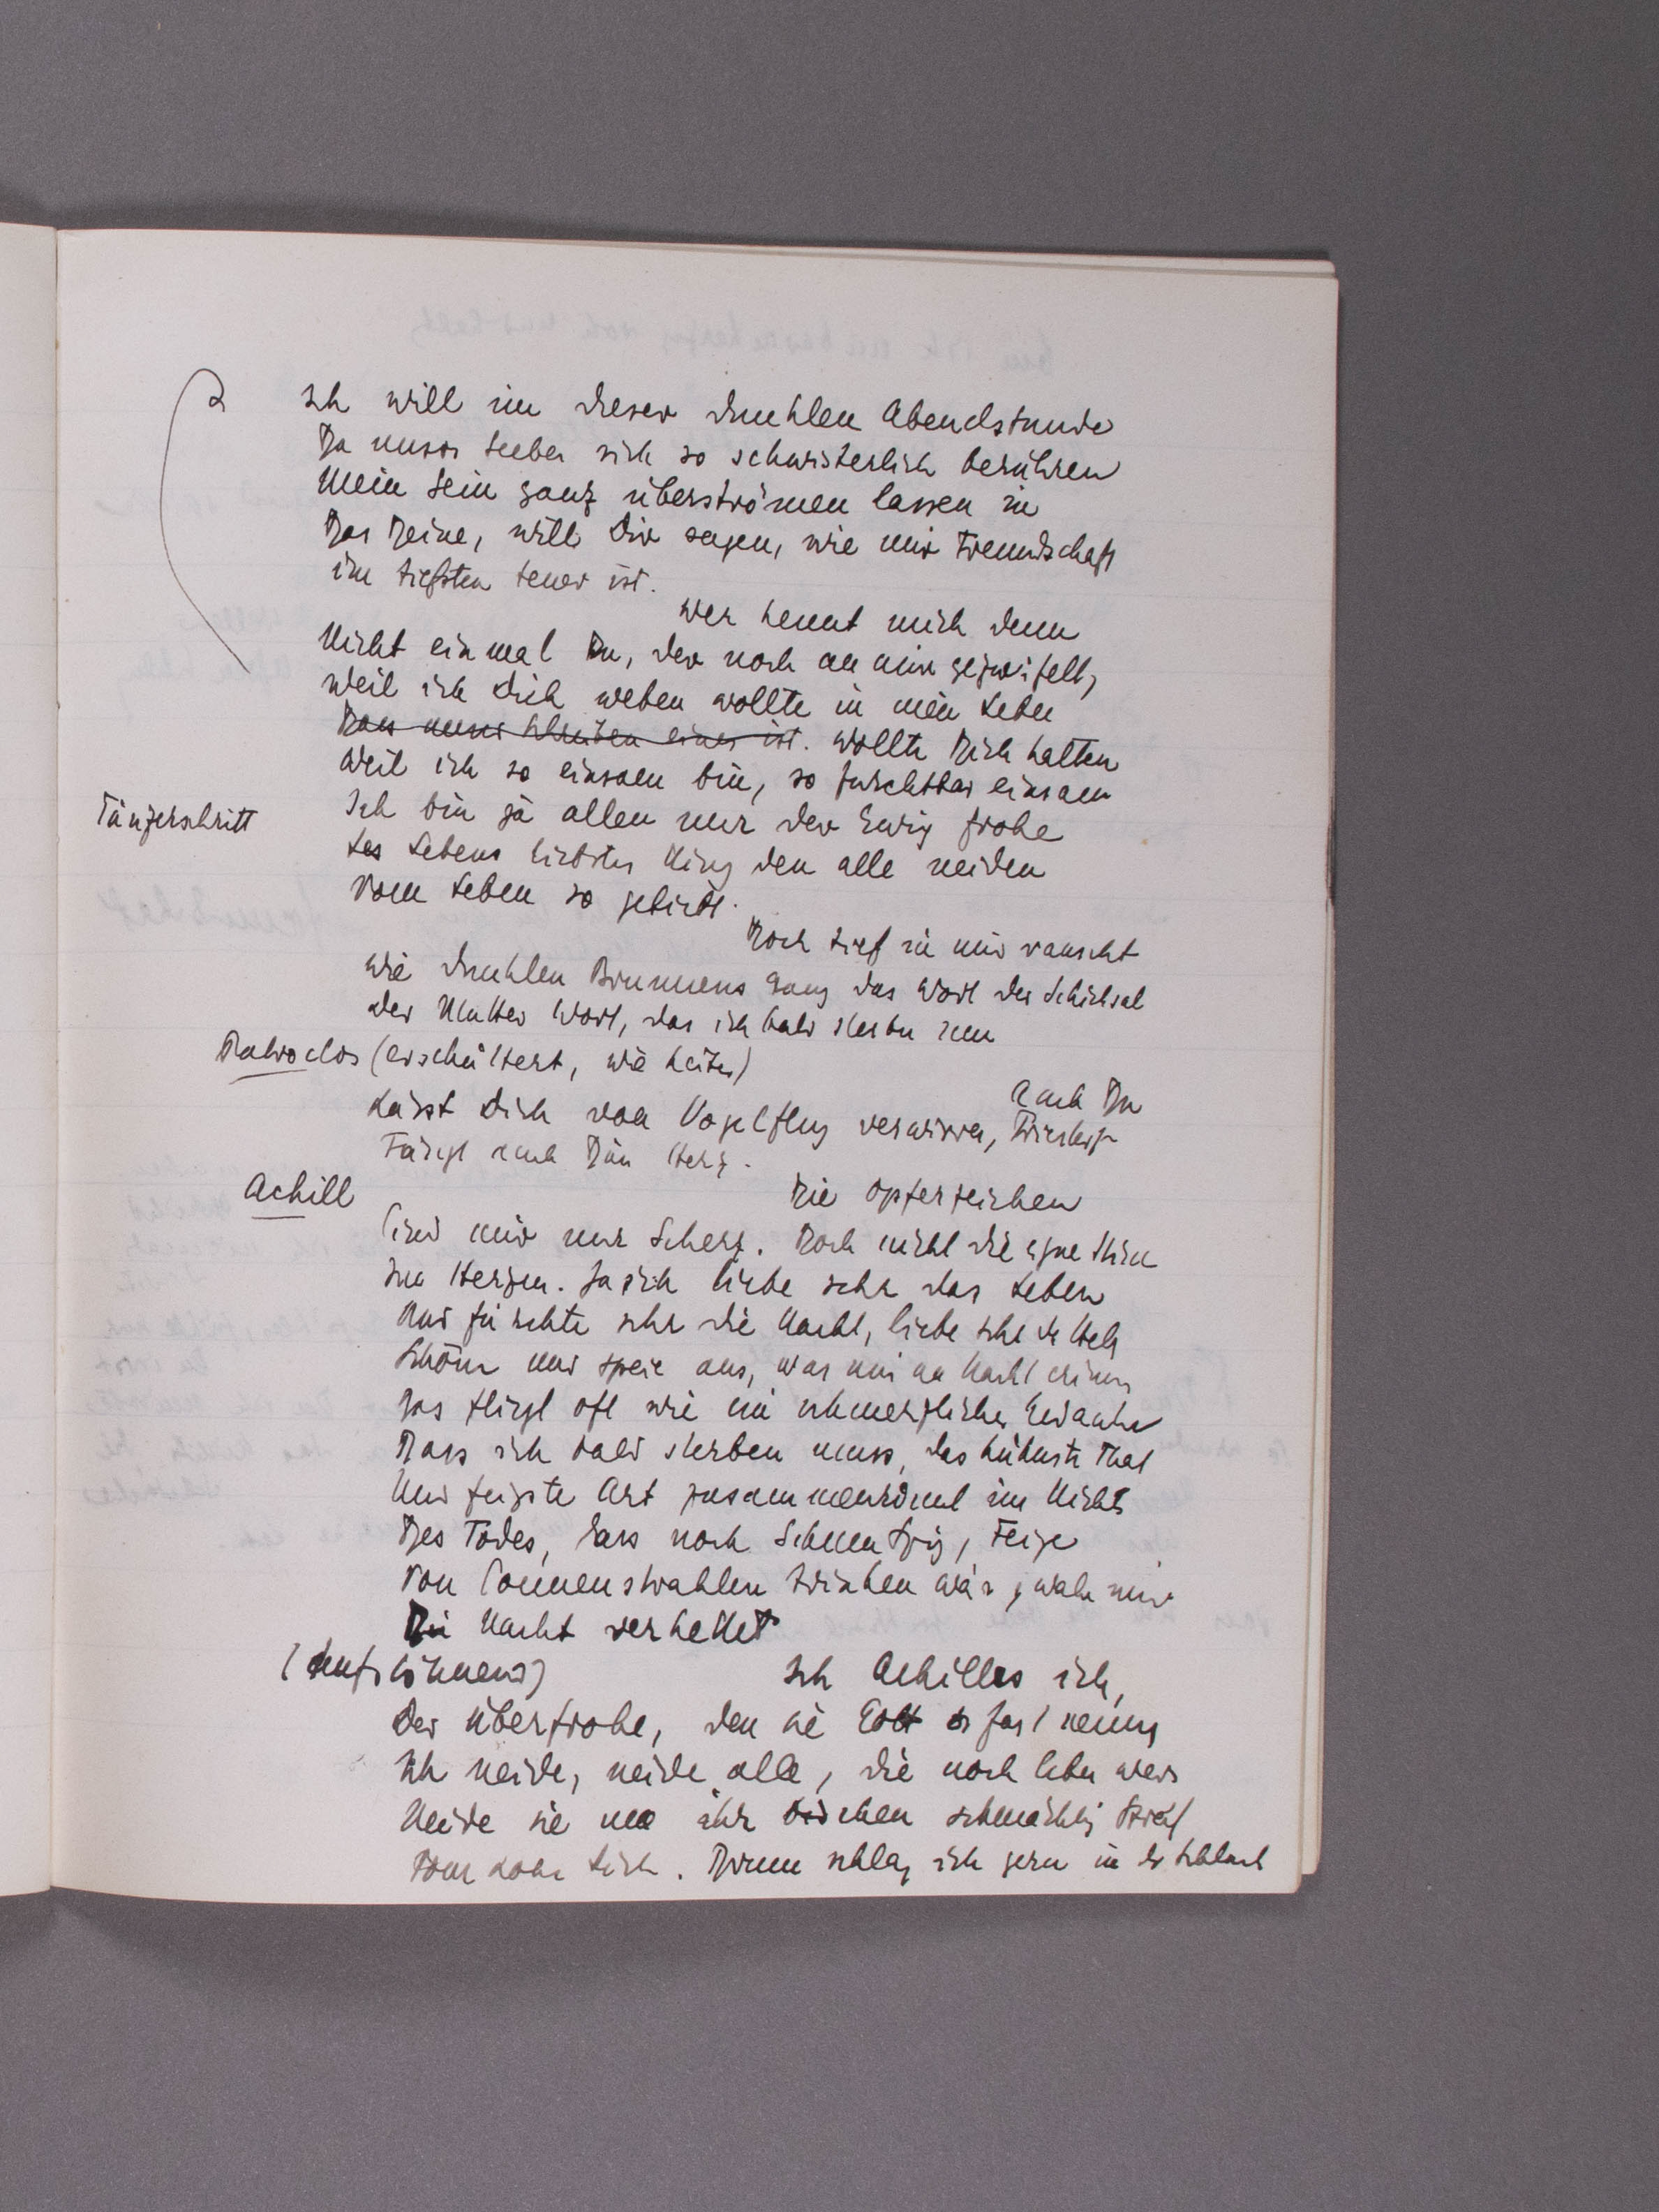 Ich will in dieser dunklen Abendstunde
Da unsre Leiber sich so schwisterlich berühren
Mein Sein ganz überströmen lassen in
Das Deine, will Dir sagen, wie mir Freundschaft
im tiefsten teuer ist.
Wer kennt mich denn
Nicht einmal Du, der noch an mir gezweifelt,
Weil ich Dich weben wollte in mein Leben
Dass unser eines ist. Wollte Dich halten
Weil ich so einsam bin, so furchtbar einsam
Tänzerschritt
Ich bin ja allen nur der Ewig frohe
des Lebens liebster den alle neiden
Vom Leben so geliebt.
Doch tief in mir rauscht
Wie dunklen Brunnens Sang das Wort des Schicksal
der Mutter Wort, das ich bald sterben
Patroclos (erschüttert, wie heiter)
Auch Du
Lässt Dich von Vogelflug verwirren, Priester
Fängt auch Dein Herz.
Achill
Die Opferzeichen
Sind mir nur Scherz. Doch nicht die eigne Stimm
Im Herzen. Ja ich liebe sehr das Leben
Und fürchte sehr die Nacht, liebe sehr die Welt
Schöne und speie aus, was mir an Nacht
Das fliegt oft wie ein schmerzlicher Gedanke
Dass ich bald sterben muss, das kühnste That
Und feigste Art im Nichts
Des Todes, dass noch Schmutzig, Feige
Von Sonnenstrahlen trinken wär, wenn mir
Die Nacht verkettet
(aufstöhnend)
Ich Achilles ich,
Der Überfrohe, den sie Gott fast nennen
Ich neide, neide alle, die noch leben werd
Neide sie um ihr bischen
Vom Licht. Drum schlag ich gern in der Schlacht